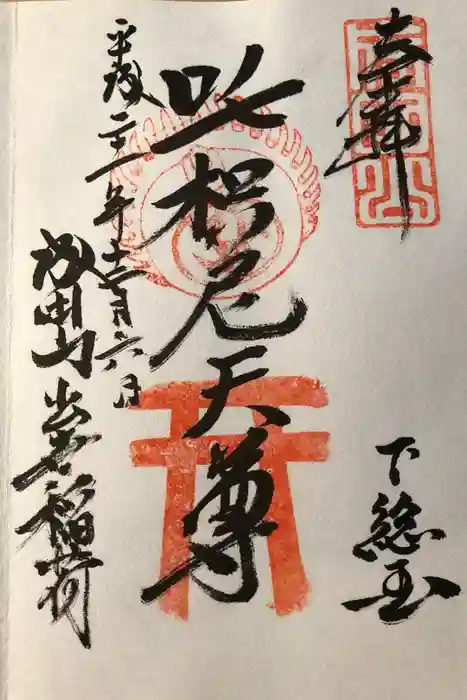 奉拝
下総国
吒枳尼天尊
平成二十一年十二月六日
成田山出世稲荷